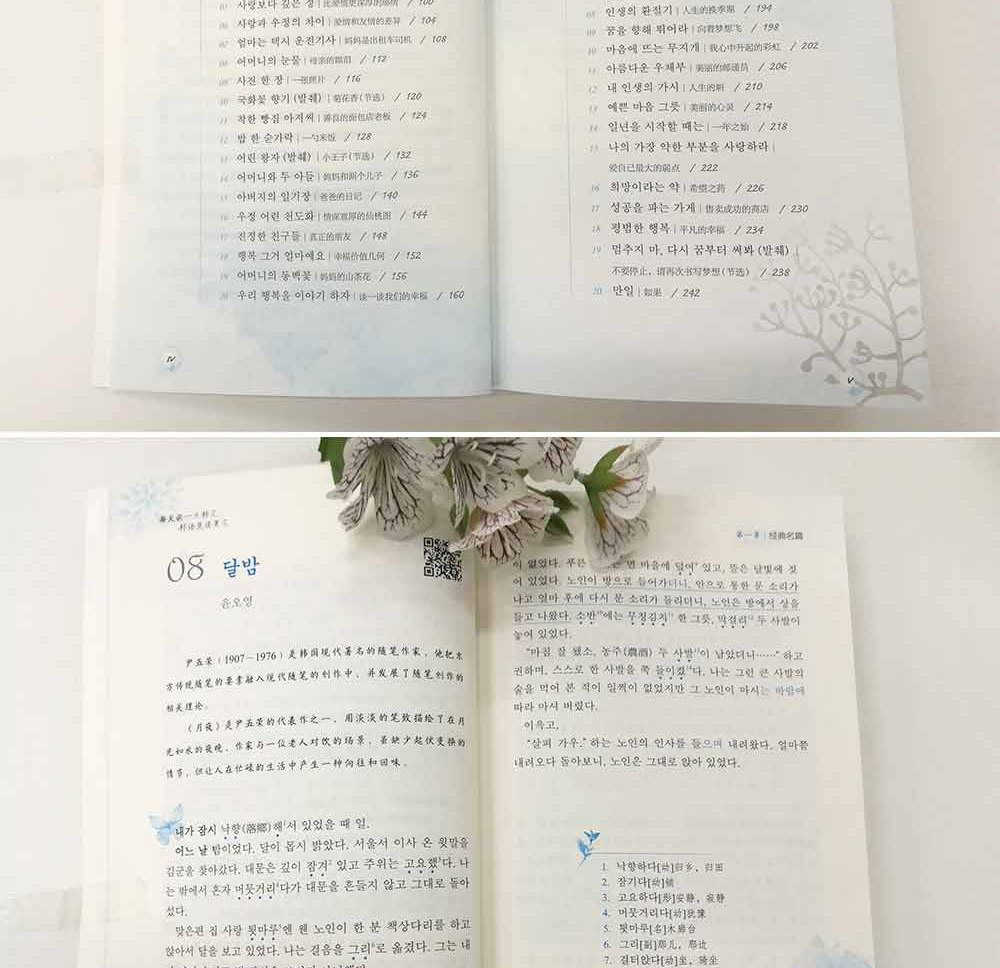 05 사랑보다 깊은 정 | 比爱情更深厚的感情 / 100
06 사랑과 우정의 차이 | 爱情和友情的差异 / 104
07 엄마는 택시 운전기사 | 妈妈是出租车司机 / 108
08 어머니의 눈물 | 母亲的眼泪 / 112
09 사진 한 장 | 一张照片 / 116
10 국화꽃 향기 (발췌) | 菊花香(节选) / 120
11 착한 빵집 아저씨 | 善良的面包店老板 / 124
12 밥 한 숟가락 | 一勺米饭 / 128
13 어린 왕자 (발췌) | 小王子(节选) / 132
14 어머니와 두 아들 | 妈妈和两个儿子 / 136
15 아버지의 일기장 | 爸爸的日记 / 140
16 우정 어린 천도화 | 情深意厚的仙桃图 / 144
17 진정한 친구들 | 真正的朋友 / 148
18 행복 그거 얼마예요 | 幸福价值几何 / 152
19 어머니의 동백꽃 | 妈妈的山茶花 / 156
20 우리 행복을 이야기 하자 | 谈一谈我们的幸福 / 160
IV
08 인생의 환절기 | 人生的换季期 / 194
09 꿈을 향해 뛰어라 | 向着梦想飞 / 198
10 마음에 뜨는 무지개 | 我心中升起的彩虹 / 202
11 아름다운 우체부 | 美丽的邮递员 / 206
12 내 인생의 가시 | 人生的刺 / 210
13 예쁜 마음 그릇 | 美丽的心灵 / 214
14 일년을 시작할 때는 | 一年之始 / 218
15 나의 가장 약한 부분을 사랑하라 |
爱自己最大的弱点 / 222
16 희망이라는 약 | 希望之药 / 226
17 성공을 파는 가게 | 售卖成功的商店 / 230
18 평범한 행복 | 平凡的幸福 / 234
19 멈추지 마, 다시 꿈부터 써봐 (발췌) |
不要停止,请再次书写梦想(节选) / 238
20 만일 | 如果 / 242
V
每天读一点韩文
韩语最读美文
08 달밤
윤오영
尹五荣(1907-1976)是韩国现代著名的随笔作家,他把东
方传统随笔的要素融入现代随笔的创作中,并发展了随笔创作的
相关理论。
《月夜》是尹五荣的代表作之一,用淡淡的笔致描绘了在月
光如水的夜晚,作家与一位老人对饮的场景,虽缺少起伏变换的
情节,但让人在忙碌的生活中产生一种向往和回味。
내가 잠시 낙향(落鄕)해1서 있었을 때 일.
어느 날 밤이었다. 달이 몹시 밝았다. 서울서 이사 온 윗말을
김군을 찾아갔다. 대문은 깊이 잠겨2 있고 주위는 고요했3다. 나
는 밖에서 혼자 머뭇거리4다가 대문을 흔들지 않고 그대로 돌아
섰다.
맞은편 집 사랑 툇마루5엔 웬 노인이 한 분 책상다리를 하고
앉아서 달을 보고 있었다. 나는 걸음을 그리6로 옮겼다. 그는 내
第一章 | 经典名篇
이 없었다. 푸른 먼 마을에 덮여9 있고, 뜰은 달빛에 젖
어 있었다. 노인이 방으로 들어가더니, 안으로 통한 문 소리가
나고 얼마 후에 다시 문 소리가 들리더니, 노인은 방에서 상을
들고 나왔다. 소반10에는 무청김치11 한 그릇, 막걸리12 두 사발이
놓여 있었다.
"마침 잘 됐소. 농주(農酒) 두 사발13이 남았더니……" 하고
권하며, 스스로 한 사발을 쭉 들이켰14다. 나는 그런 큰 사발의
술을 먹어 본 적이 일찍이 없었지만 그 노인이 마시는 바람에
따라 마셔 버렸다.
이윽고,
"살펴 가우." 하는 노인의 인사를 들으며 내려왔다. 얼마쯤
내려오다 돌아보니, 노인은 그대로 앉아 있었다.
1. 낙향하다[动]归乡,归田
2. 잠기다[动]锁
3. 고요하다[形]安静,寂静
4. 머뭇거리다[动]犹豫
5. 툇마루[名]木廊台
6. 그리[副]那儿,那边
7. 걸터앉다[动]坐,骑坐